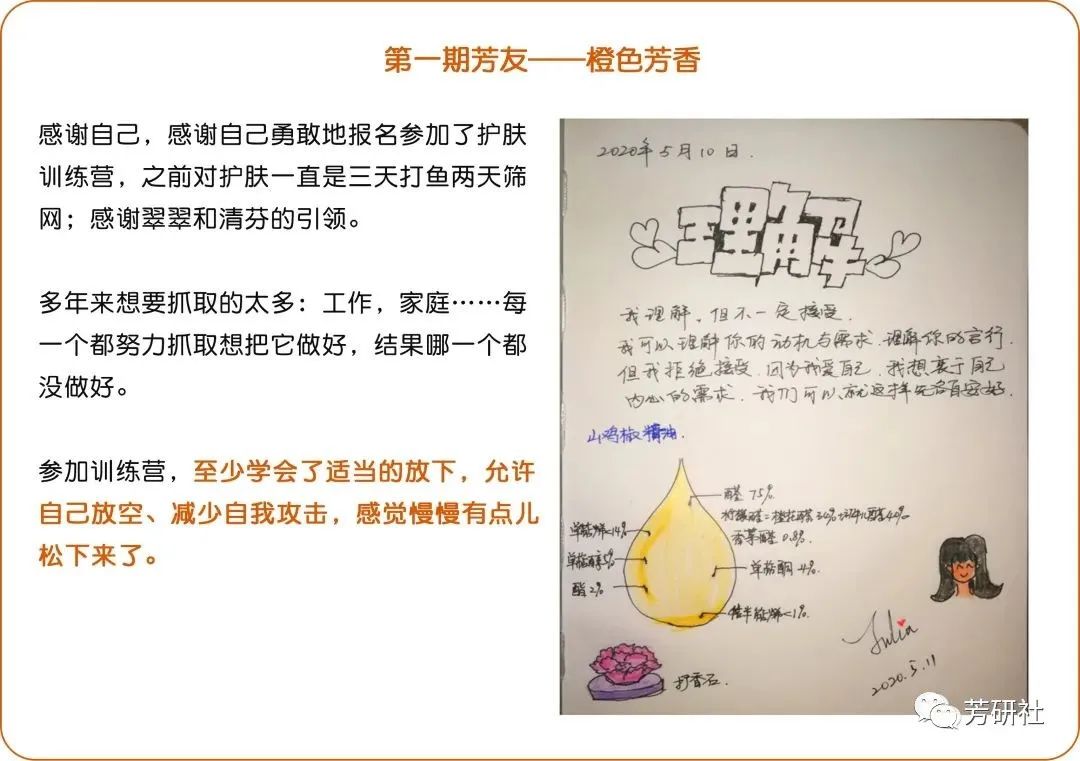 第一期芳友——橙色芳香
感谢自己，感谢自己勇敢地报名参加了护肤
训练营，之前对护肤一直是三天打鱼两天筛
网；感谢翠翠和清芬的引领。
多年来想要抓取的太多：工作，家庭……每
一个都努力抓取想把它做好，结果哪一个都
没做好。
参加训练营，至少学会了适当的放下，允许
自己放空、减少自我攻击，感觉慢慢有点儿
松下来了。
2020年5月10日.
理解
我理解，但不一定接受.
我可以理解你的动机与需求.理解你的言行.
但我拒绝接受.因为我爱自己.我想衷于自己
内心的需求.我们可以就这样先各自安好.
山鸡椒精油.
醛 75%
柠檬醛=橙花醛30% 牻牛儿醛40%
香茅醛 0.8%
单萜烯<14%
单萜醇5%
酯2%
单萜酮4%.
倍半萜烯<1%.
扩香石.
Julia
2020.5.11
芳研社